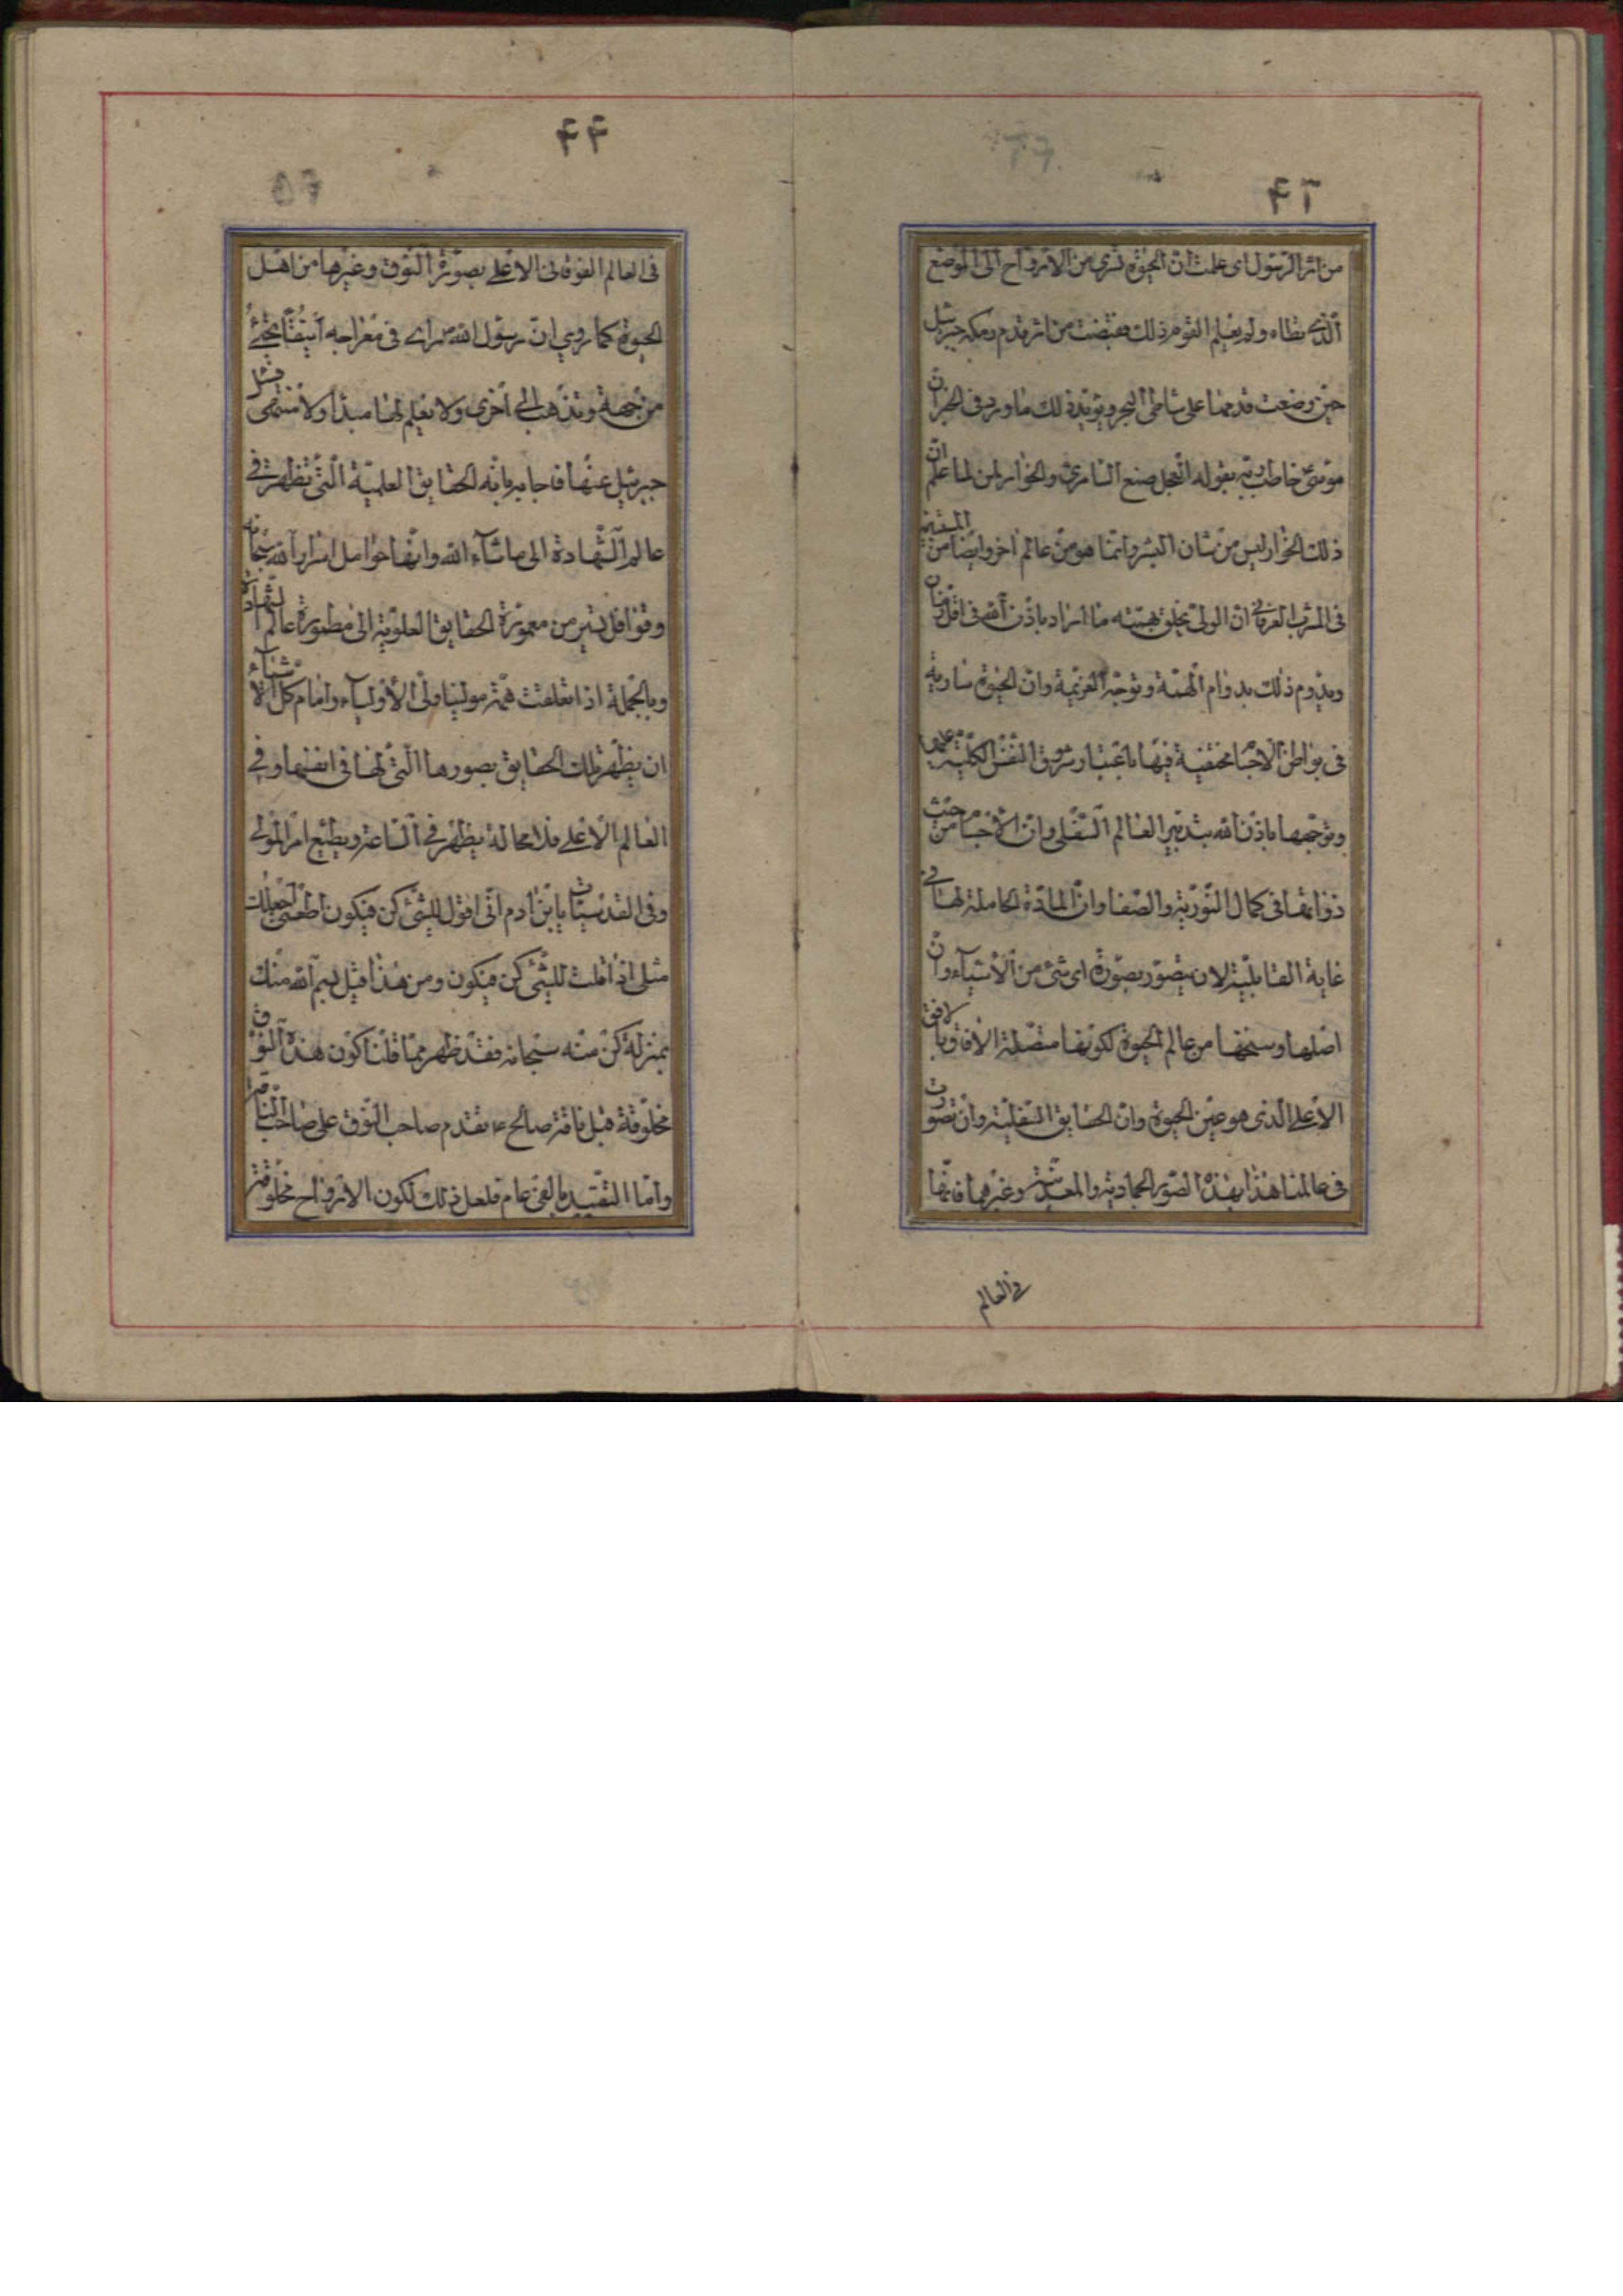 ۴۳
من اثر الرسول ای علمت ان الحیوة تسری من الارواح الی الموضع
الذی تطاه ولم یعلم القوم ذلک فقبضت من اثر قدم رمکه جبرئیل
حین وضعت قدمها علی شاطی البحر ویؤید ذلک ما ورد فی الخبر ان
موسی ع خاطب ربه بقوله العجل صنع السامری والخوار لمن لما علم ان
ذلک الخوار لیس من شان البشر وانما هو من عالم اخر وایضا من المستبین
فی المشرب العرفانی ان الولی یخلق بهمته ما اراد باذن الله فی اقل زمان
ویدوم ذلک بدوام الهمة وتوجه العزیمة وان الحیوة ساریه
فی بواطن الاجسام مختفیة فیها باعتبار شروق النفس الکلیة علیها
وتوجهها باذن الله بتدبیر العالم السفلی وان الاجسام من حیث
ذواتها فی کمال النوریة والصفا وان المادة الحاملة لها فی
غایة القابلیة لان یتصور بصورة ای شئ من الاشیاء وان
اصلها وسنخها من عالم الحیوة لکونها متصلة الافاق بالافق
الاعلی الذی هو عین الحیوة وان الحقایق السفلیة وان تصورت
فی عالمنا هذا بهذه الصور الجمادیة والمعدنیة وغیرهما فانها
فی العالم
۴۴
فی العالم الفوقانی الاعلی بصورة النوق وغیرها من اهل
الحیوة کما روی ان رسول الله ص رای فی معراجه أینقا تجئ
من جهة وتذهب الی اخری ولا یعلم لها مبدأ ولا منتهی فسئل
جبرئیل عنها فاجابه بانه الحقایق العلمیة التی تظهر فی
عالم الشهادة الی ما شآء الله وانها حوامل اسرار الله سبحانه
وقوافل تسیر من معمورة الحقایق العلویة الی مطمورة عالم الشهادة
وبالجملة اذا تعلقت همّة مولینا ولی الاولیآء وامام کل الاشیآء
ان یظهر تلک الحقایق بصورها التی لها فی انفسها وفی
العالم الاعلی فلا محالة یظهر فی الساعة ویطیع امر المولی
وفی القدسیات یابن ادم انی اقول للشئ کن فیکون اطعنی اجعلک
مثلی اذا قلت للشئ کن فیکون ومن هذا قیل بسم الله منک
بمنزلة کن منه سبحانه فقد ظهر مما قلنا کون هذه النوق
مخلوقة قبل ناقة صالح ع بتقدم صاحب النوق علی صاحب الناقة
واما التقیید بالفی عام فلعل ذلک لکون الارواح مخلوقة